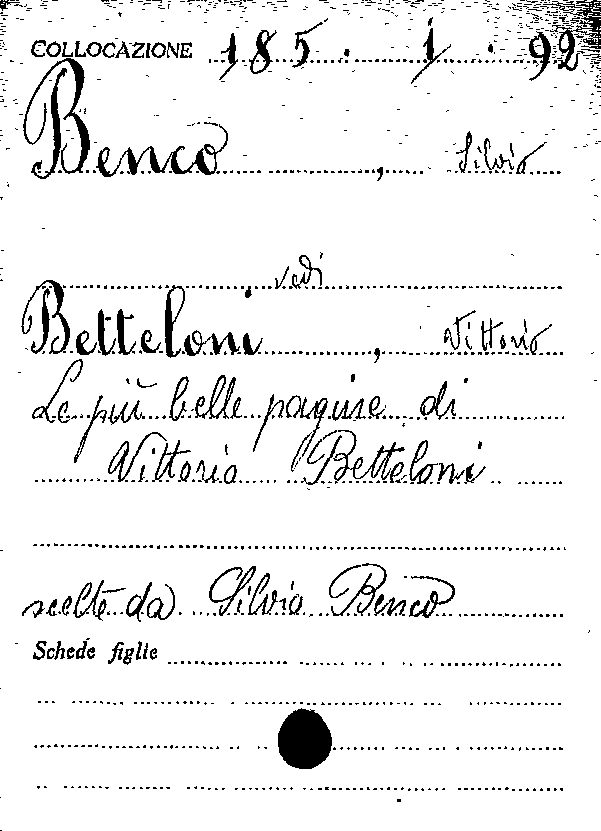 COLLOCAZIONE 185. 1. 92
Benco, Silvio
vedi
Betteloni, Vittorio
Le più belle pagine di
Vittorio Betteloni
scelte da Silvio Benco
Schede figlie